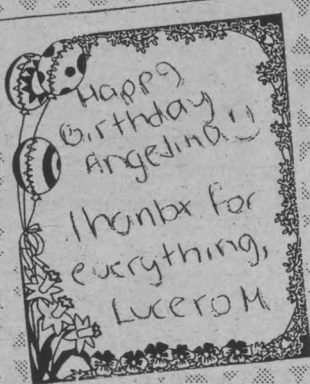 Happy
Birthday
Angelina
Thanbx for
everything,
Lucero M